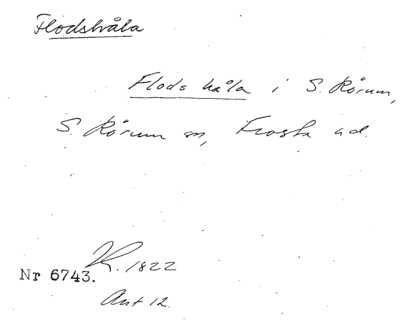 Flodshåla
Flods håla i S. Rörum,
S. Rörum sn, Frosta hd.
K. 1822
Nr 6743.
Avt 12.